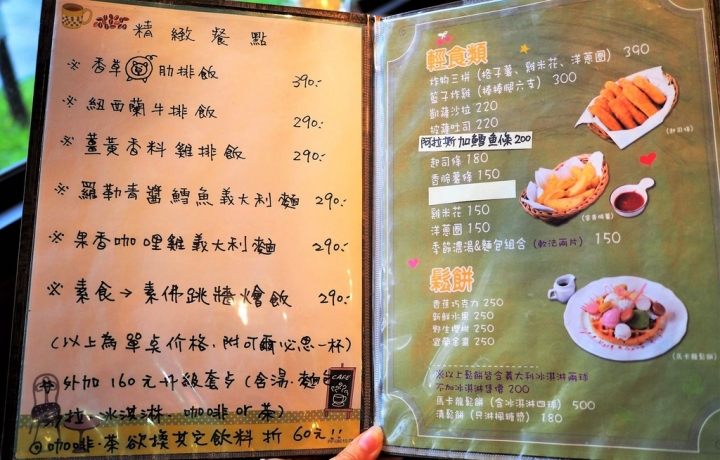 精緻餐點
※ 香草 肋排飯 390.-
※ 紐西蘭牛排飯 290.-
※ 薑黃香料雞排飯 290.-
※ 羅勒青醬鱈魚義大利麵 290.-
※ 果香咖哩雞義大利麵 290.-
※ 素食→素佛跳牆燴飯 290.-
(以上為單桌价格.附可爾必思一杯)
外加160元升級套歺(含湯.麵包
拉.冰淇淋. 咖啡or茶)
◎咖啡.茶欲換其它飲料折60元!!
CAFE
輕食類
炸物三拼 (格子薯、雞米花、洋蔥圈) 390
籃子炸雞 (棒棒腿六支) 300
凱薩沙拉 220
披薩吐司 220
阿拉斯加鱈魚條 200
起司條 180
香脆薯條 150
雞米花 150
洋蔥圈 150
季節濃湯&麵包組合 (軟法兩片) 150
(起司條)
鬆餅
香蕉巧克力 250
新鮮水果 250
野生櫻桃 250
宜蘭金棗 250
※以上鬆餅皆含義大利冰淇淋兩球
不加冰淇淋售價 200
馬卡龍鬆餅 (含冰淇淋四球) 500
清鬆餅 (只淋楓糖漿) 180
(馬卡龍鬆餅)